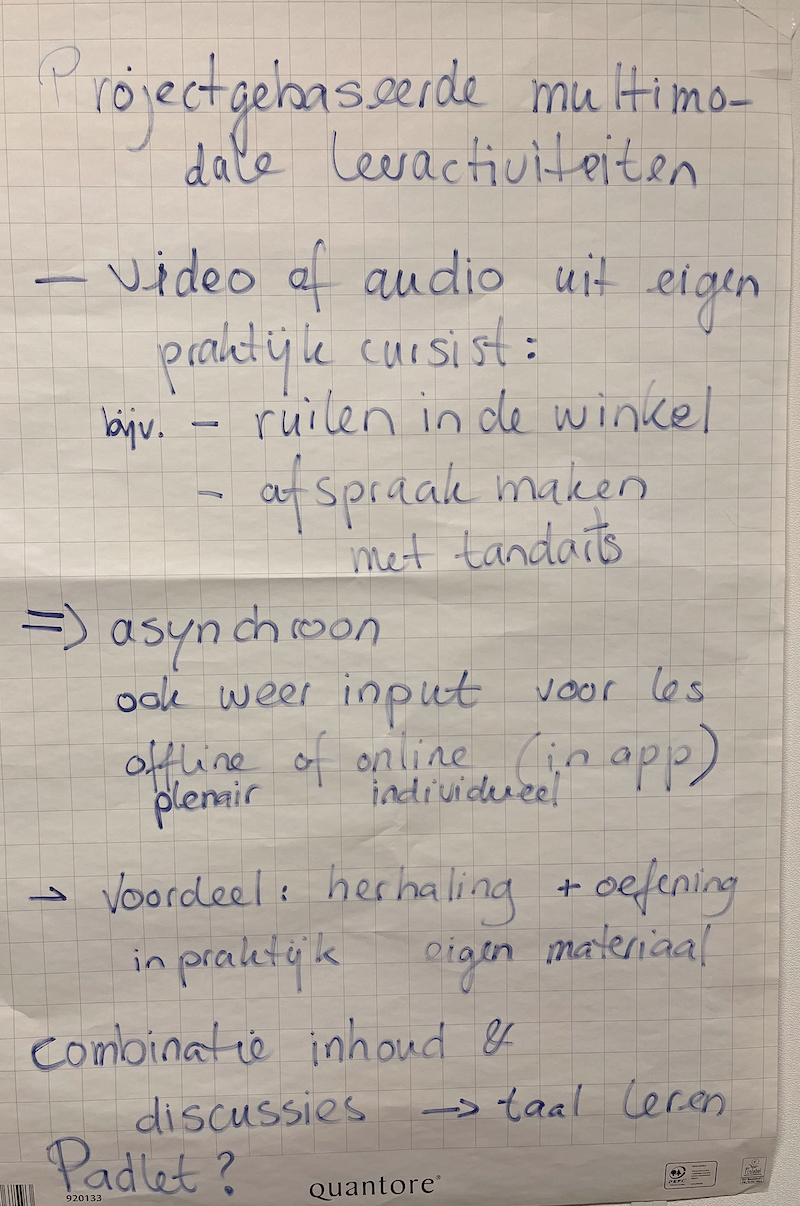 Projectgebaseerde multimo-
dale leeractiviteiten
– video of audio uit eigen
praktijk cursist:
bijv. – ruilen in de winkel
- afspraak maken
met tandarts
=> asynchroon
ook weer input voor les
offline of online (in app)
plenair individueel
→ Voordeel: herhaling + oefening
in praktijk eigen materiaal
combinatie inhoud &
discussies → taal leren
Padlet?
920133
quantore®
PEFC